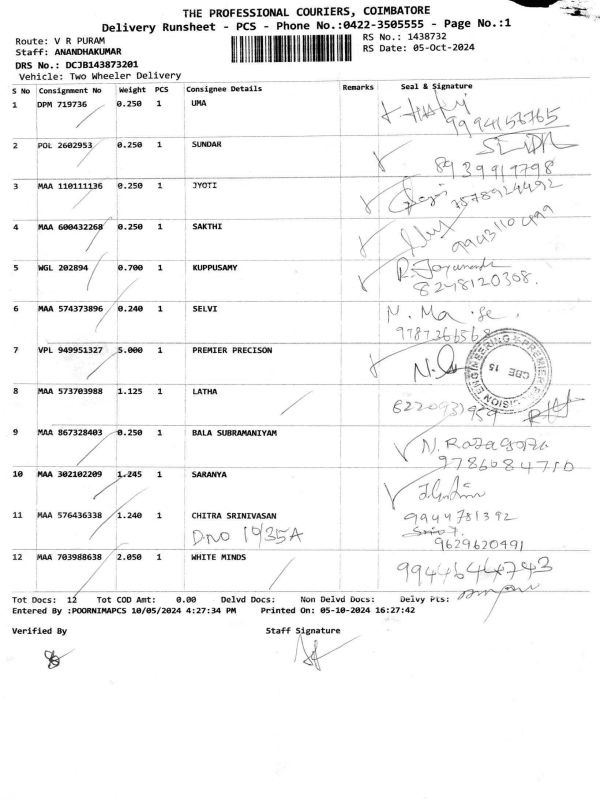 THE PROFESSIONAL COURIERS, COIMBATORE
Delivery Runsheet - PCS - Phone No.:0422-3505555 - Page No.:1
Route: V R PURAM RS No.: 1438732
Staff: ANANDHAKUMAR RS Date: 05-Oct-2024
DRS No.: DCJB143873201
Vehicle: Two Wheeler Delivery
S No Consignment No Weight PCS Consignee Details Remarks Seal & Signature
1 DPM 719736 0.250 1 UMA
9994156765
2 POL 2602953 0.250 1 SUNDAR
8939919798
3 MAA 110111136 0.250 1 JYOTI
7578924492
4 MAA 600432268 0.250 1 SAKTHI
5 WGL 202894 0.700 1 KUPPUSAMY
8248120308.
6 MAA 574373896 0.240 1 SELVI
9787366568
7 VPL 949951327 5.000 1 PREMIER PRECISON
CBE 15
8 MAA 573703988 1.125 1 LATHA
9 MAA 867328403 0.250 1 BALA SUBRAMANIYAM
9786084710
10 MAA 302102209 1.245 1 SARANYA
11 MAA 576436338 1.240 1 CHITRA SRINIVASAN 9944781392
9629620491
12 MAA 703988638 2.050 1 WHITE MINDS 9944644743
Tot Docs: 12 Tot COD Amt: 0.00 Delvd Docs: Non Delvd Docs: Delvy Pts:
Entered By :POORNIMAPCS 10/05/2024 4:27:34 PM Printed On: 05-10-2024 16:27:42
Verified By Staff Signature